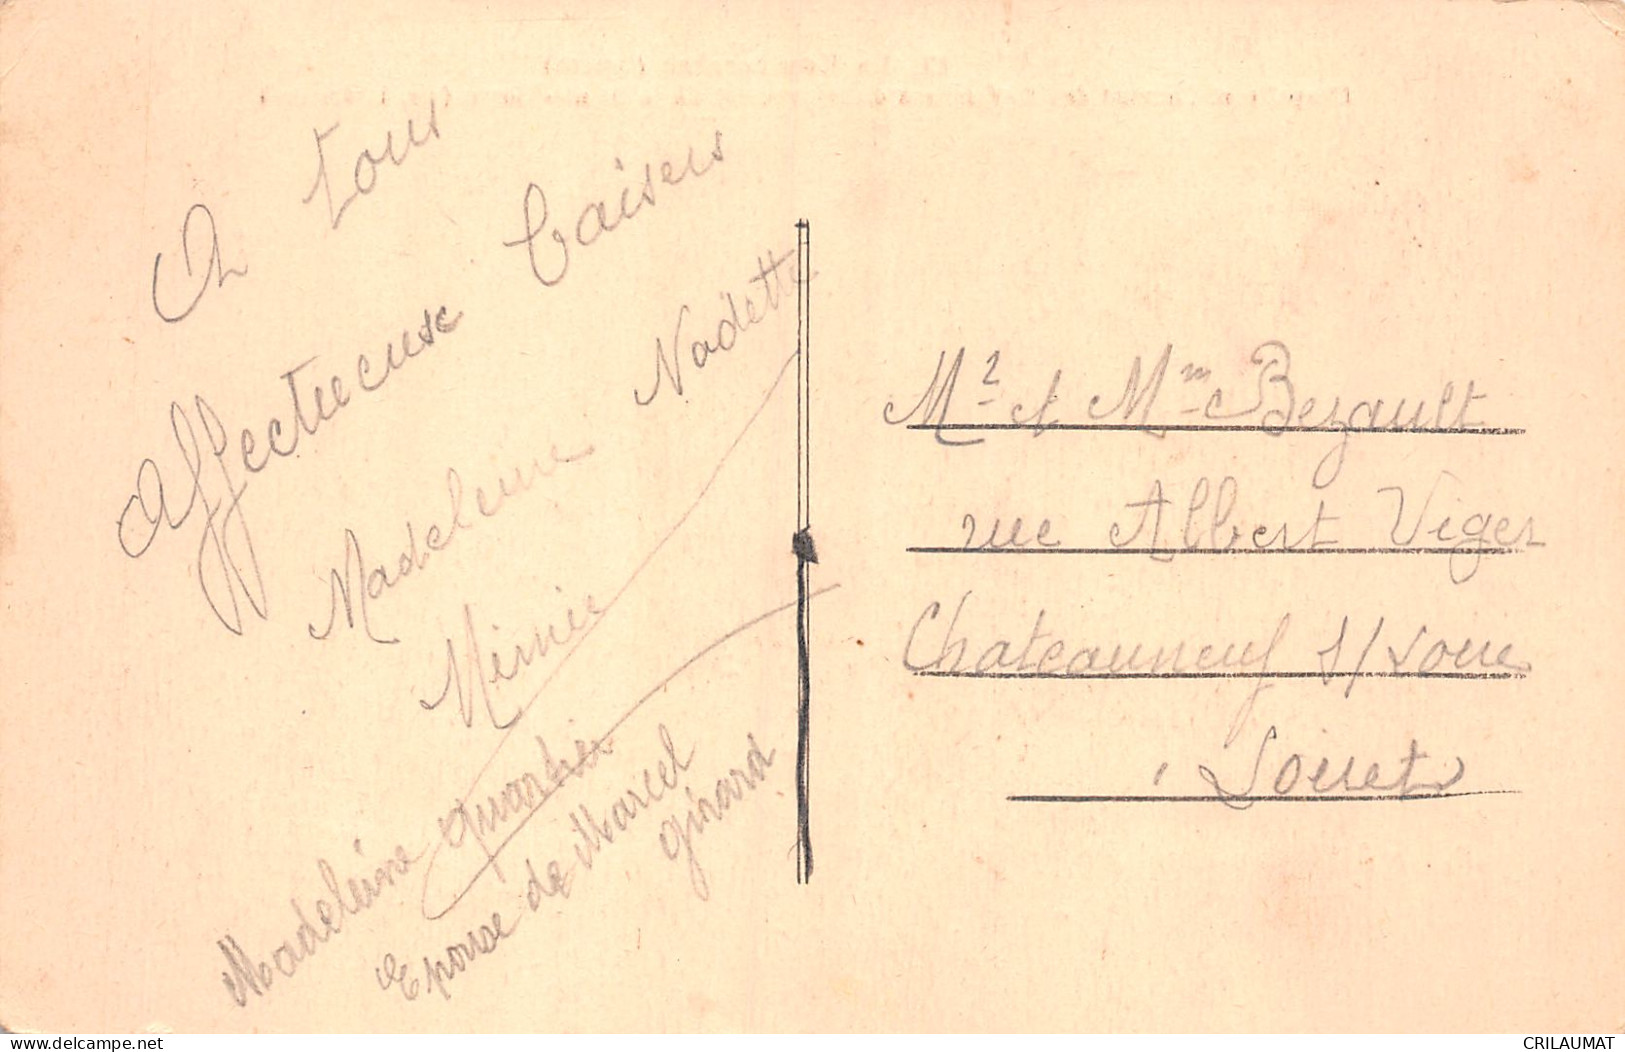 A tous
Affectueuse baisers
Madeleine Nadette
Mimie
Madeleine
Epouse de Marcel
girard
Mr et Mme Bezault
rue Albert Viger
Chateauneuf s/Loire
Loiret
www.delcampe.net
CRILAUMAT